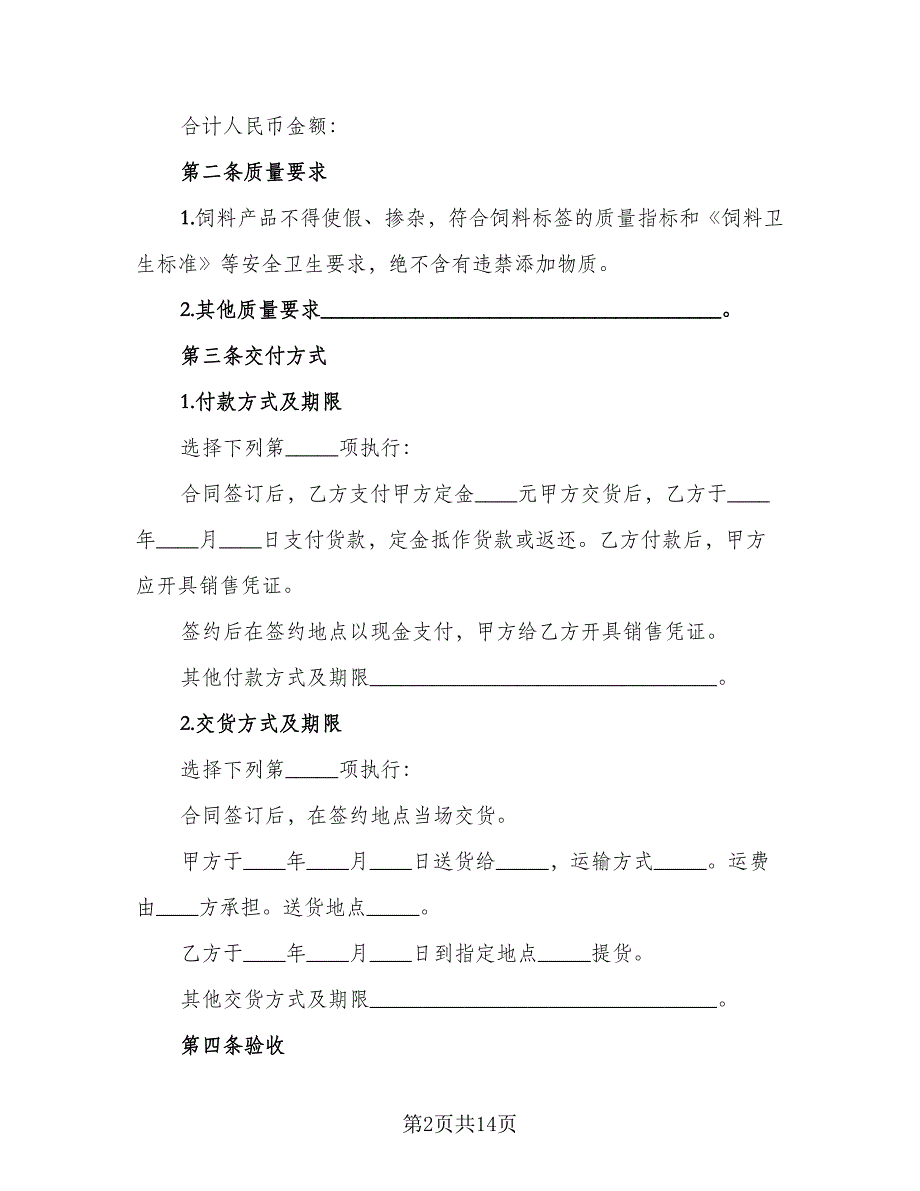 合计人民币金额：
第二条质量要求
1.饲料产品不得使假、掺杂，符合饲料标签的质量指标和《饲料卫
生标准》等安全卫生要求，绝不含有违禁添加物质。
2.其他质量要求______________________________________。
第三条交付方式
1.付款方式及期限
选择下列第_____项执行：
合同签订后，乙方支付甲方定金____元甲方交货后，乙方于____
年____月____日支付货款，定金抵作货款或返还。乙方付款后，甲方
应开具销售凭证。
签约后在签约地点以现金支付，甲方给乙方开具销售凭证。
其他付款方式及期限_________________________________。
2.交货方式及期限
选择下列第_____项执行：
合同签订后，在签约地点当场交货。
甲方于____年____月____日送货给_____，运输方式_____。运费
由____方承担。送货地点_____。
乙方于____年____月____日到指定地点_____提货。
其他交货方式及期限_________________________________。
第四条验收
第2页共14页